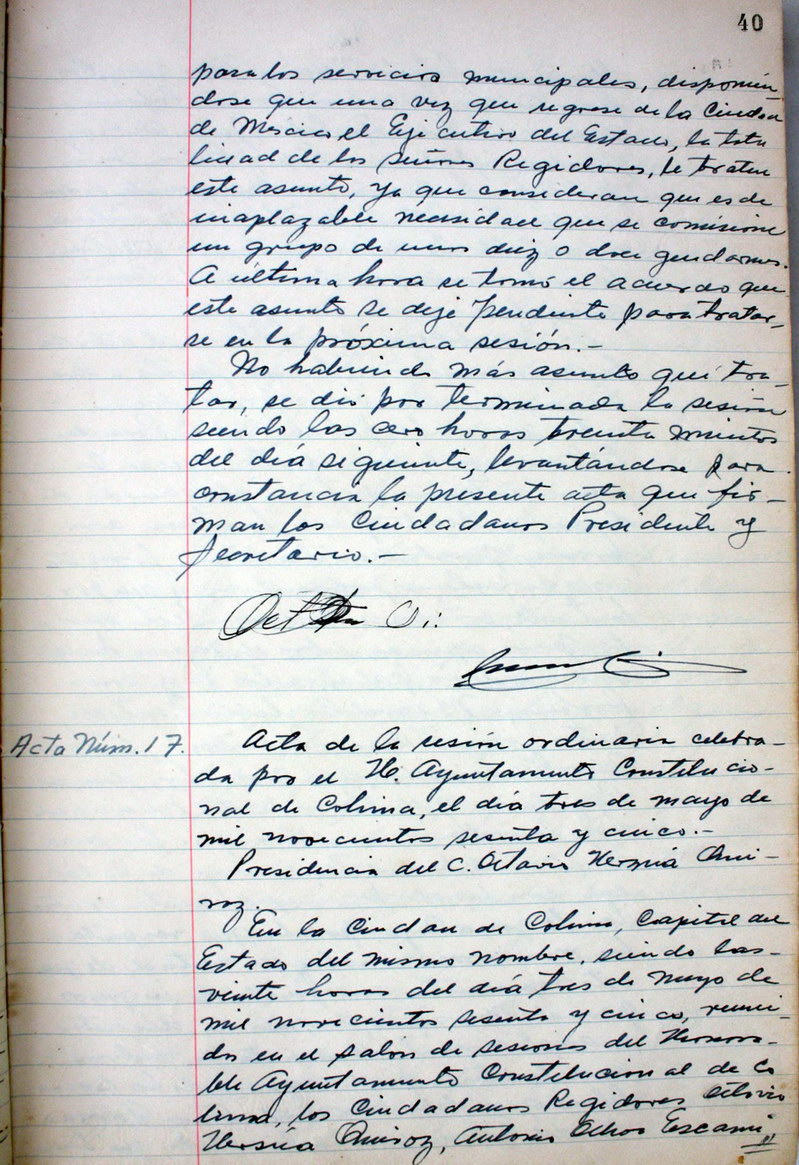 40
para los servicios municipales, disponién
dose que una vez que regrese de la Ciudad
de México el Ejecutivo del Estado, la tota
lidad de los señores Regidores, le traten
este asunto, ya que consideran que es de
inaplazable necesidad que se comisione
un grupo de unos diez o doce gendarmes.
A última hora se tomó el acuerdo que
este asunto se deje pendiente para tratar-
se en la próxima sesión.-
No habiendo más asunto qué tra-
tar, se dió por terminada la sesión
siendo las cero horas treinta minutos
del día siguiente, levantándose para
constancia la presente acta que fir-
man los Ciudadanos Presidente y
Secretario.-
Acta Núm. 17.
Acta de la sesión ordinaria celebra-
da por el H. Ayuntamiento Constitucio-
nal de Colima, el día tres de mayo de
mil novecientos sesenta y cinco.-
Presidencia del C. Octavio
En la Ciudad de Colima, Capital del
Estado del mismo nombre, siendo las
veinte horas del día tres de mayo de
mil novecientos sesenta y cinco, reuni-
dos en el salón de sesiones del Honora-
ble Ayuntamiento Constitucional de Co
lima, los Ciudadanos Regidores Octavio
Antonio Ochoa Escami